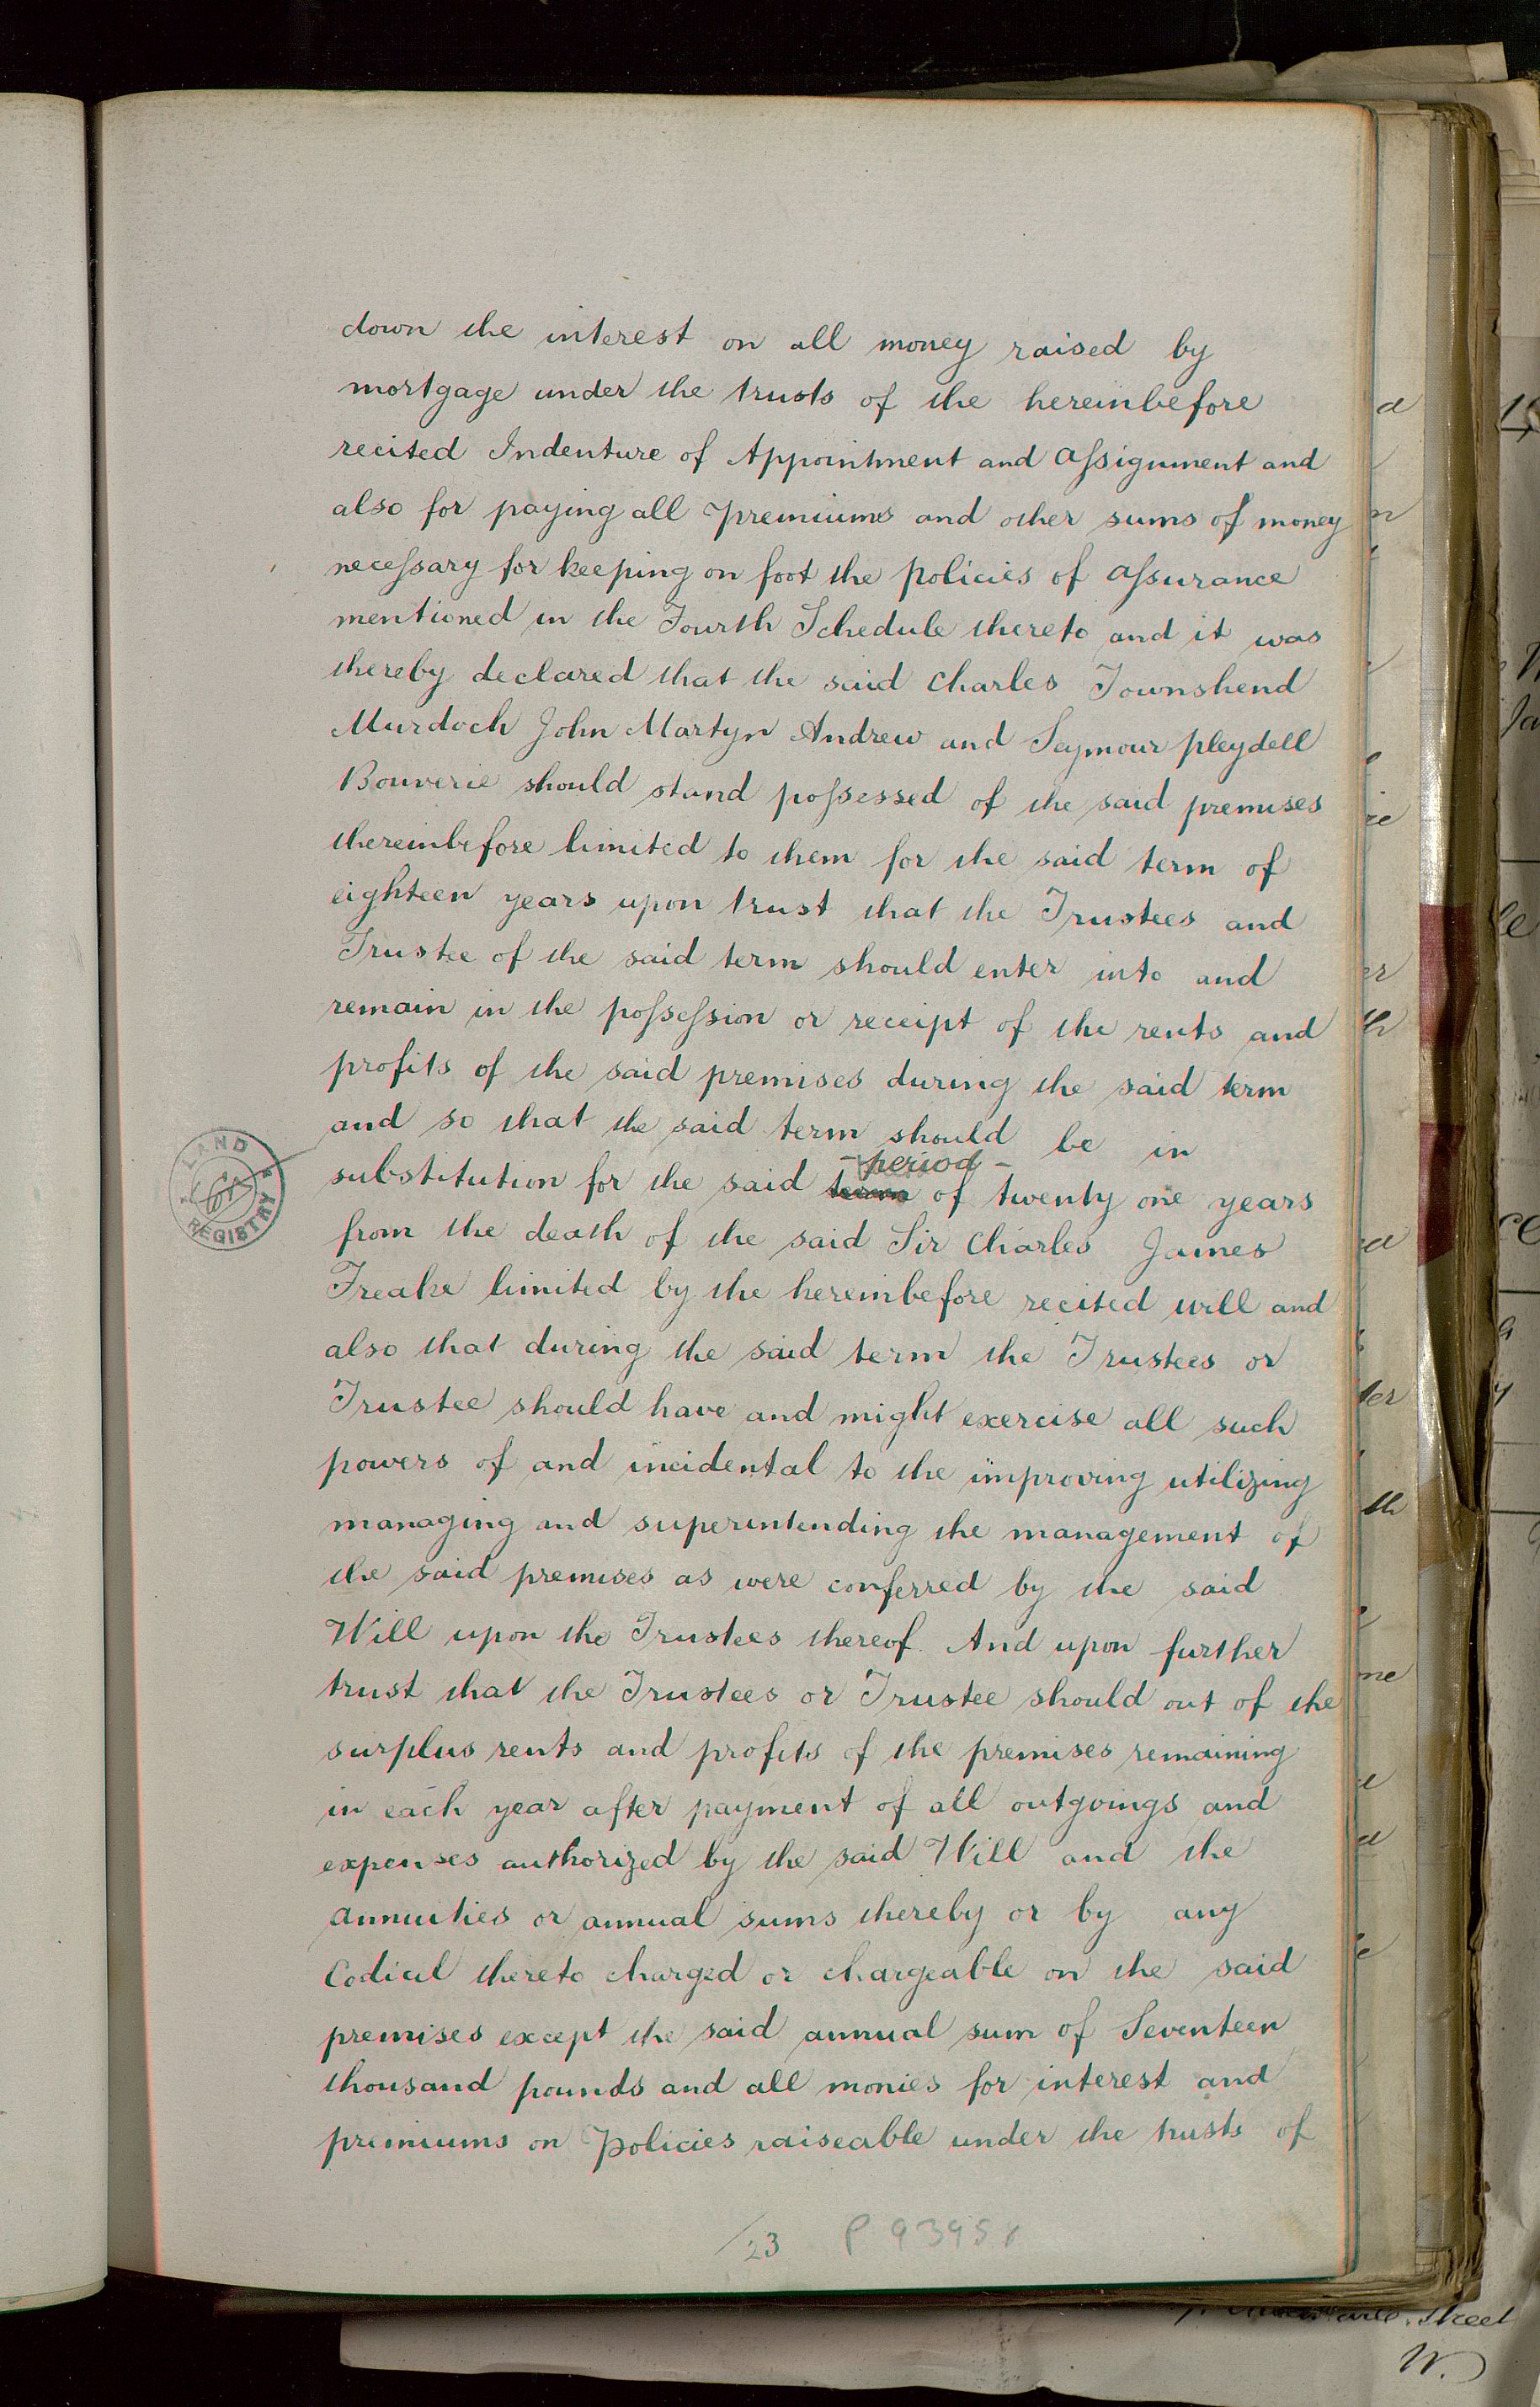 down the interest on all money raised by
mortgage under the trusts of the hereinbefore
recited Indenture of Appointment and Assignment and
also for paying all premiums and other sums of money
necessary for keeping on foot the policies of assurance
mentioned in the Fourth Schedule thereto and it was
thereby declared that the said Charles Townshend
Murdoch John Martyn Andrew and Seymour pleydell
Bouverie should stand possessed of the said premises
thereinbefore limited to them for the said term of
eighteen years upon trust that the Trustees and
Trustee of the said term should enter into and
remain in the possession or receipt of the rents and
profits of the said premises during the said term
and so that the said term should be in
- period -
substitution for the said term of twenty one years
from the death of the said Sir Charles James
Freake limited by the hereinbefore recited will and
also that during the said term the Trustees or
Trustee should have and might exercise all such
powers of and incidental to the improving utilizing
managing and superintending the management of
the said premises as were conferred by the said
Will upon the Trustees thereof. And upon further
trust that the Trustees or Trustee should out of the
surplus rents and profits of the premises remaining
in each year after payment of all outgoings and
expenses authorized by the said Will and the
annuities or annual sums thereby or by any
Codicil thereto charged or chargeable on the said
premises except the said annual sum of Seventeen
thousand pounds and all monies for interest and
premiums on Policies raiseable under the trusts of
LAND
REGISTRY
23 P 93958
street
W.